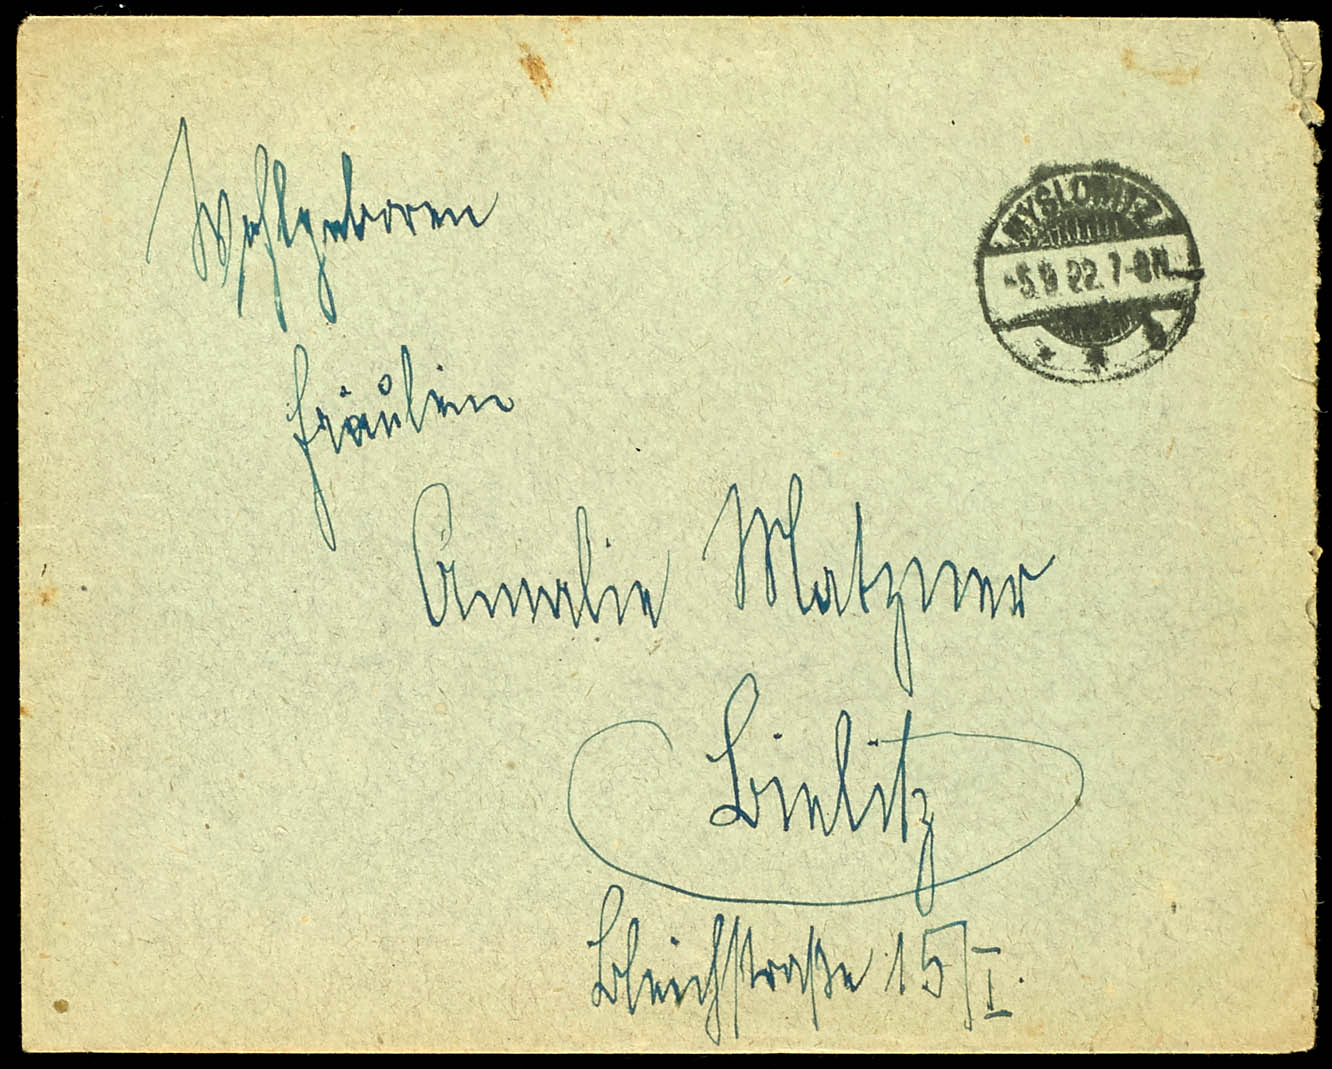 Wohlgeboren
MYSLOWITZ
-5.9.22.7-8N.
* * b
Fräulein
Amalie Matzner
Bielitz
Bleichstraße 15/I.